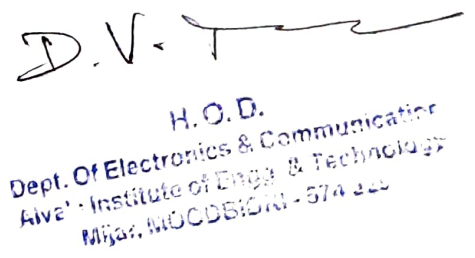 D.V.
H.O.D.
Dept. Of Electronics & Communication
Alva's Institute of Engg. & Technology
Mijar, MOODBIDRI - 574 225